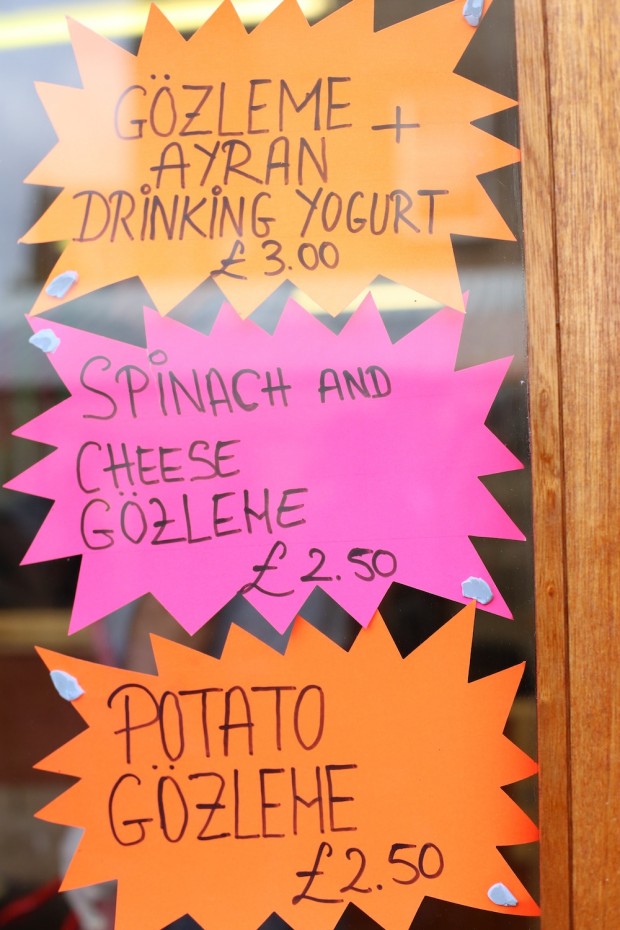 GÖZLEME +
AYRAN
DRİNKİNG YOGURT
£ 3.00
SPİNACH AND
CHEESE
GÖZLEME
£ 2.50
POTATO
GÖZLEME
£2.50